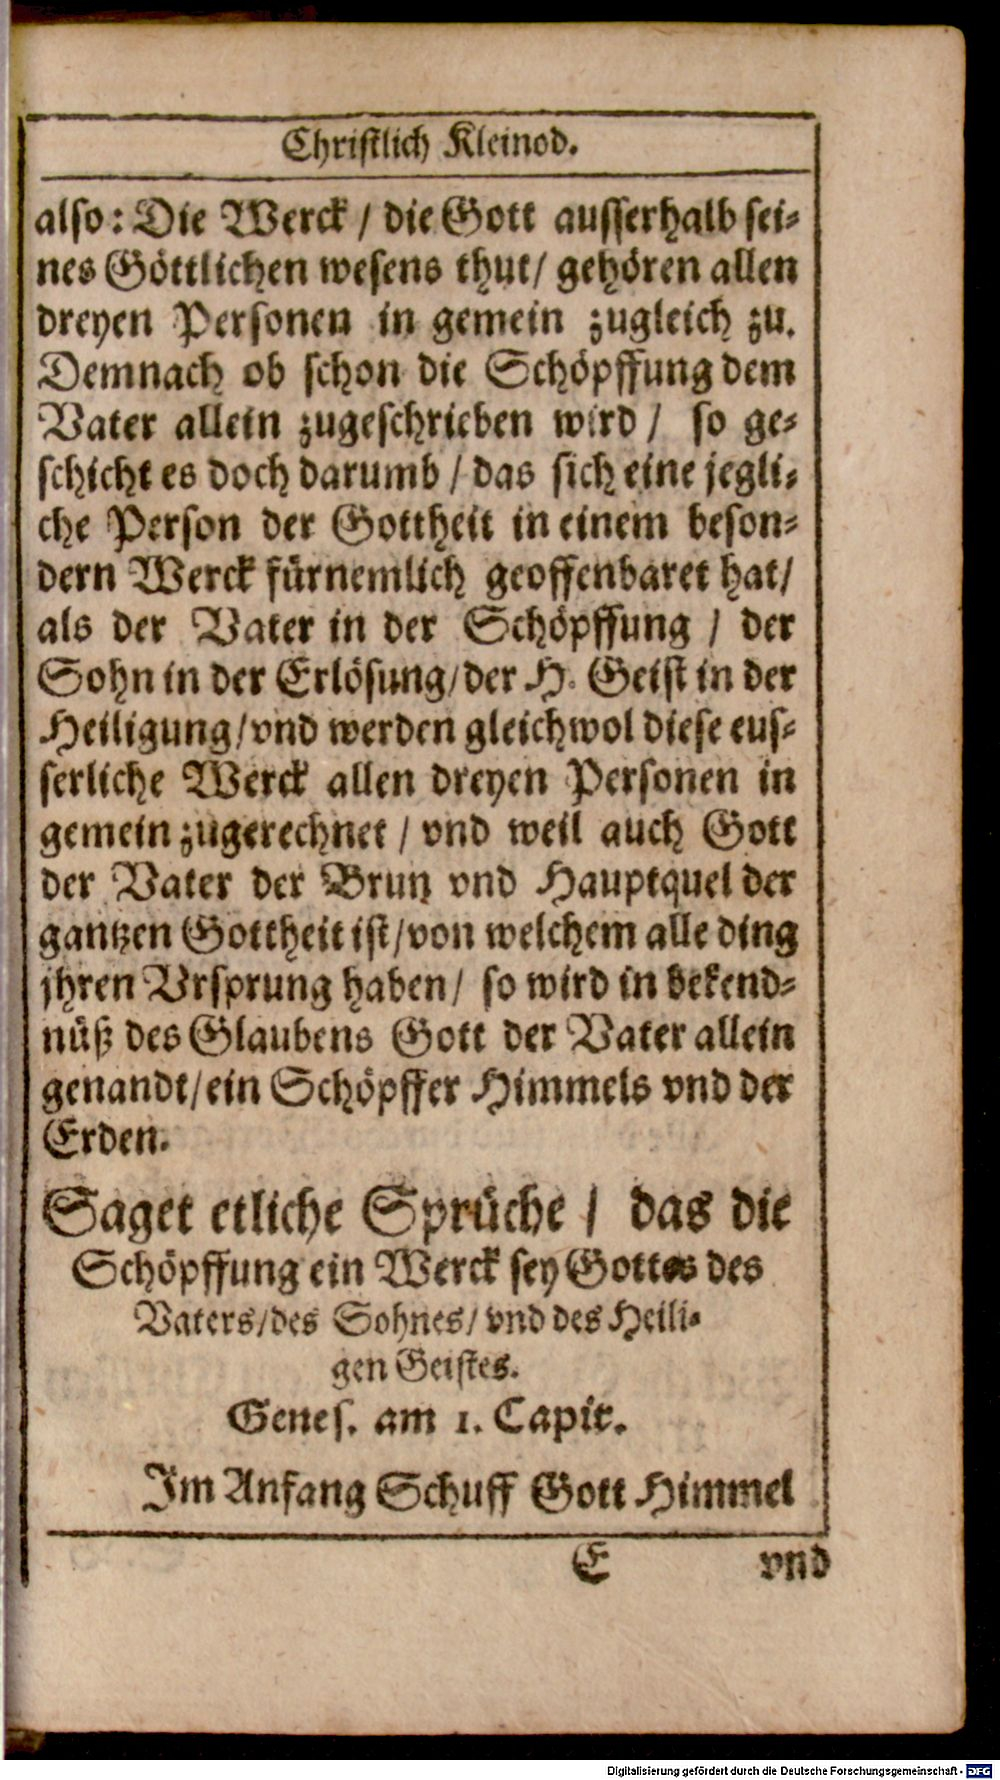 Christlich Kleinod.
also: Die Werck / die Gott ausserhalb sei-
nes Göttlichen wesens thut / gehören allen
dreyen Personen in gemein zugleich zu.
Demnach ob schon die Schöpffung dem
Vater allein zugeschrieben wird / so ge-
schicht es doch darumb / das sich eine jegli-
che Person der Gottheit in einem beson-
dern Werck fürnemlich geoffenbaret hat /
als der Vater in der Schöpffung / der
Sohn in der Erlösung / der H. Geist in der
Heiligung / vnd werden gleichwol diese eus-
serliche Werck allen dreyen Personen in
gemein zugerechnet / vnd weil auch Gott
der Vater der Brun vnd Hauptquel der
gantzen Gottheit ist / von welchem alle ding
jhren Vrsprung haben / so wird in bekend-
nüß des Glaubens Gott der Vater allein
genandt / ein Schöpffer Himmels vnd der
Erden.
Saget etliche Sprüche / das die
Schöpffung ein Werck sey Gottes des
Vaters / des Sohnes / vnd des Heili-
gen Geistes.
Genes. am 1. Capit.
Im Anfang Schuff Gott Himmel
E vnd
Digitalisierung gefördert durch die Deutsche Forschungsgemeinschaft - DFG